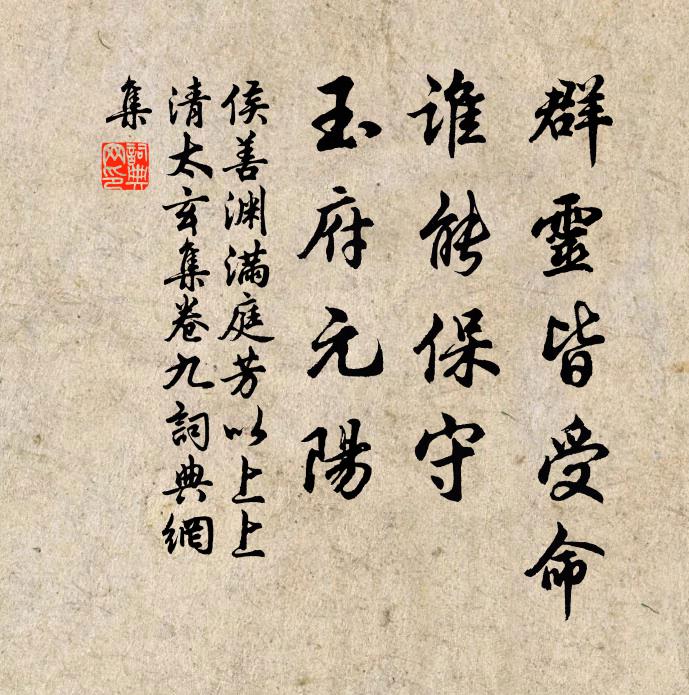 群靈皆受命
誰能保守
玉府元陽
侯善渊滿庭芳以上上
清太玄集卷九詞典網
集
詞典
网印